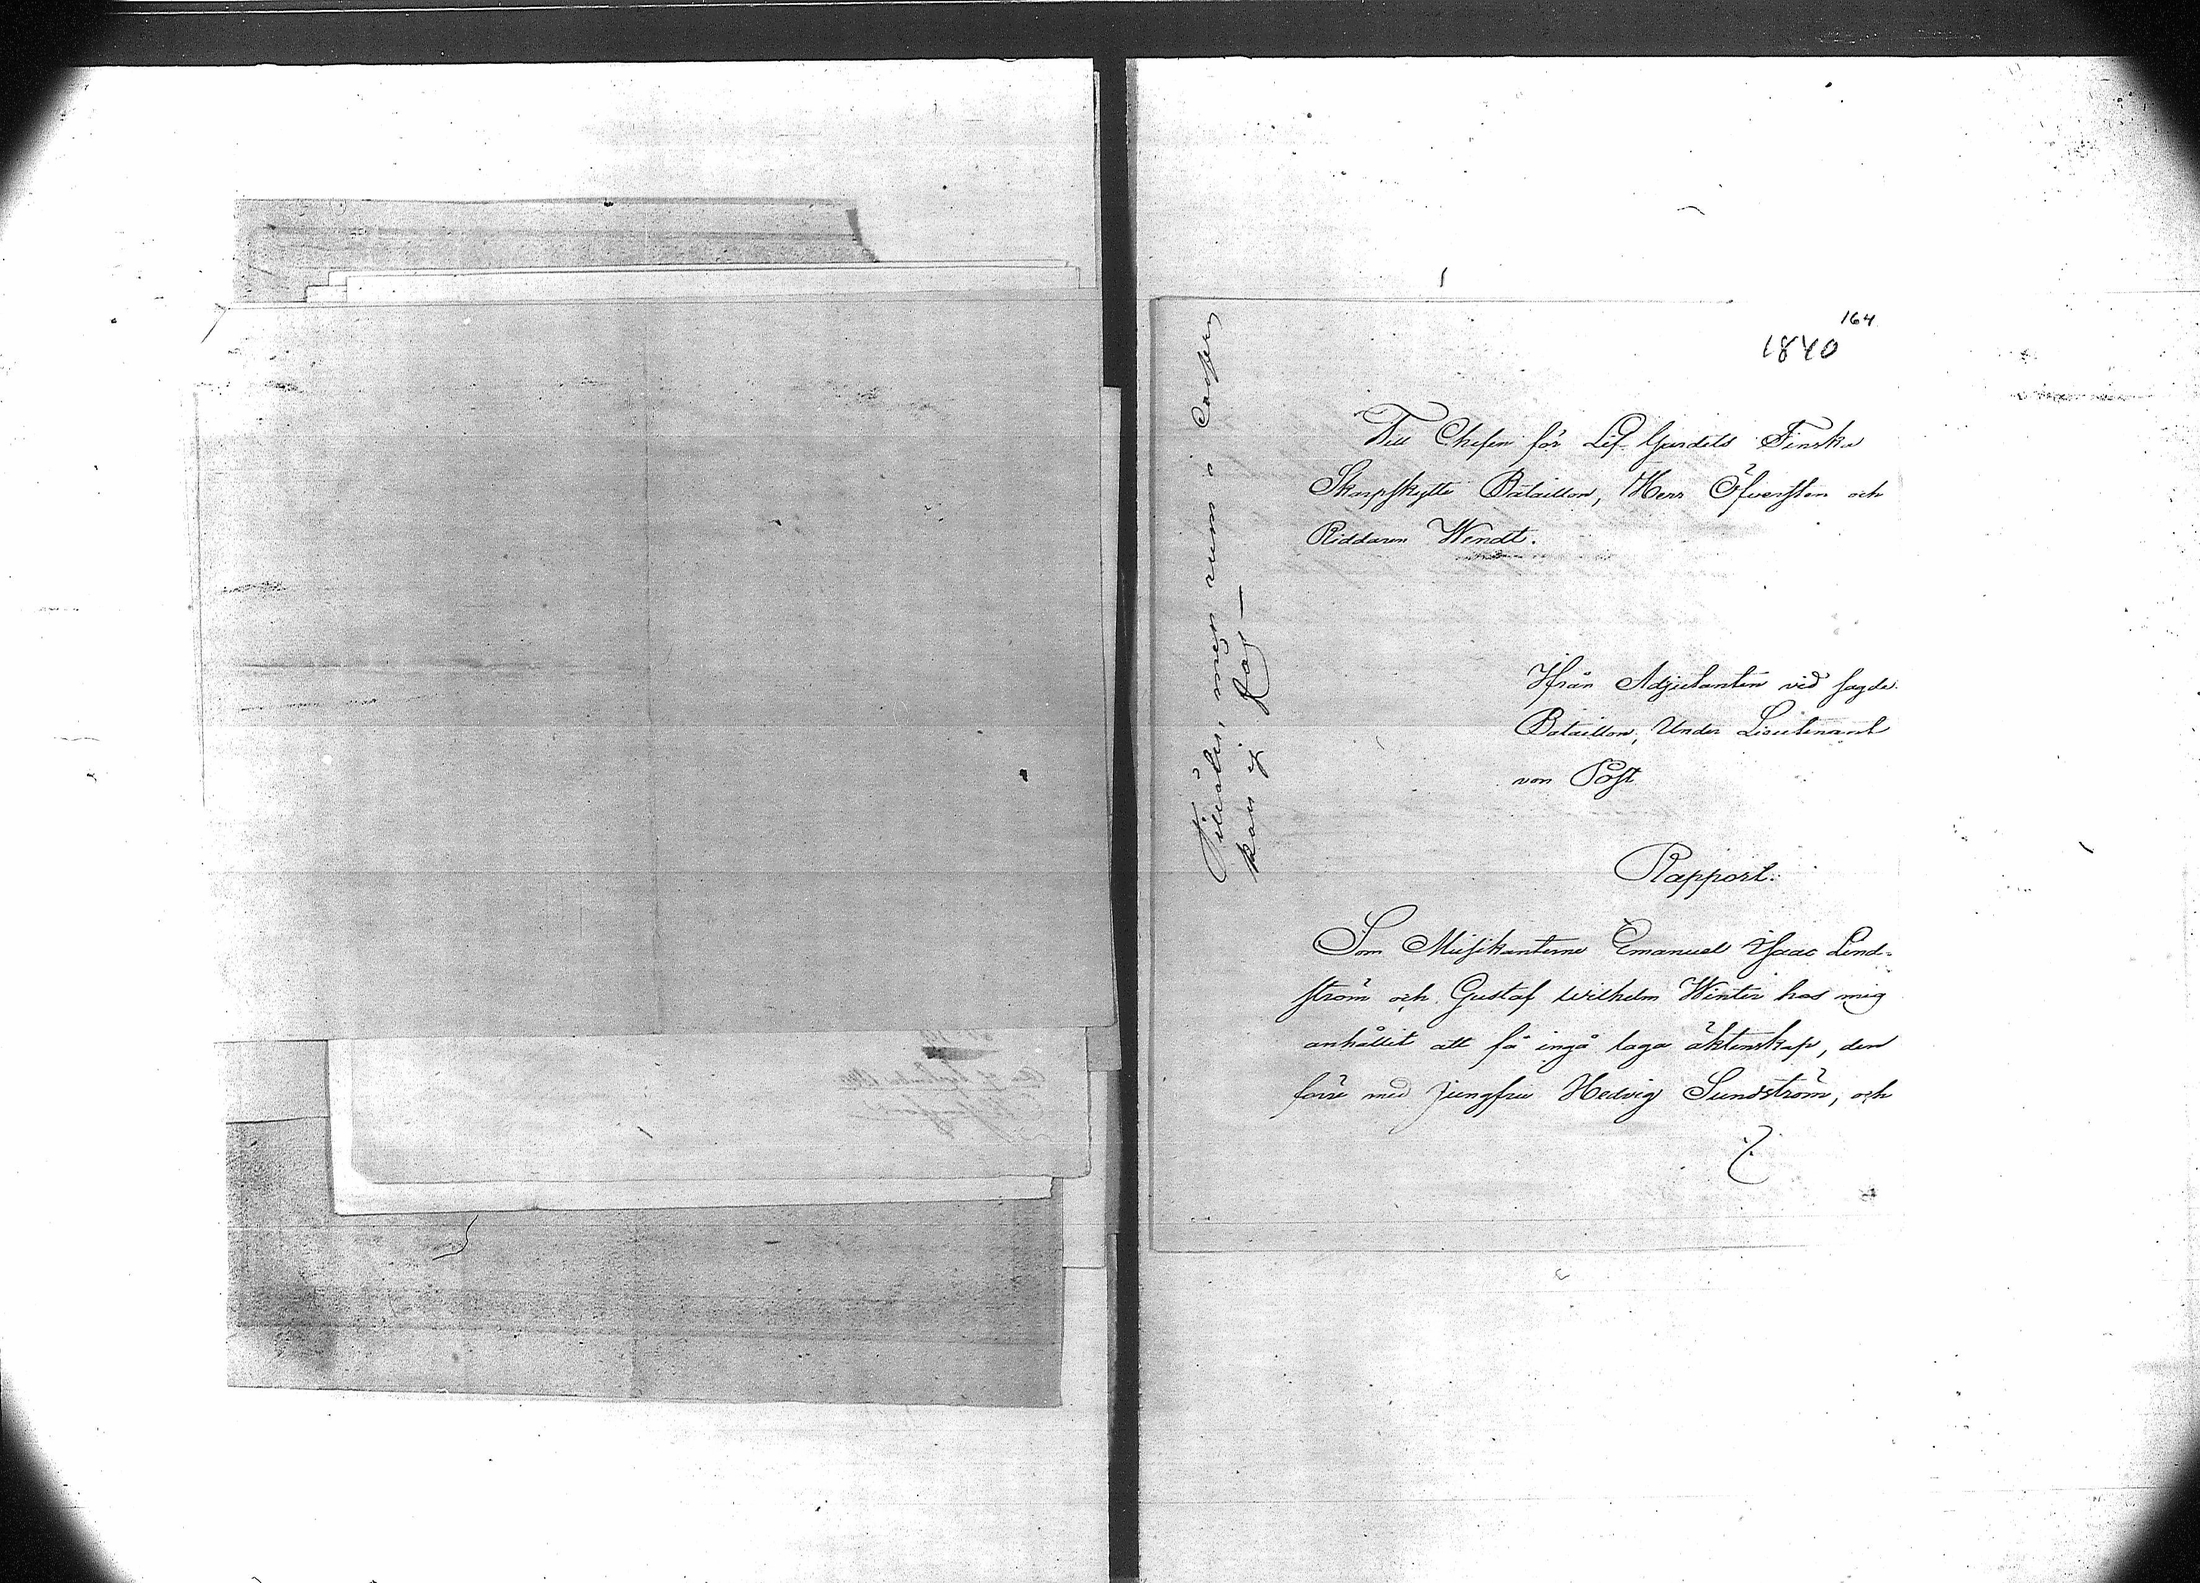 164
1840
Till Chefen för Lif-Gardets Finska
Skarpskytte Bataillon, Herr Öfversten och
Riddaren Wendt.
Ifrån Adjutanten vid sagde
Bataillon, Under Lieutenant
von Post
Rapport.
Som Musikanterne Emanuel Isaac Lind-
ström och Gustaf Wilhelm Winter hos mig
anhållit att få ingå laga äktenskap, den
förre med Jungfru Hedvig Sundström, och
./.
Tillåtes, men rum i Casern
kan ej fås —